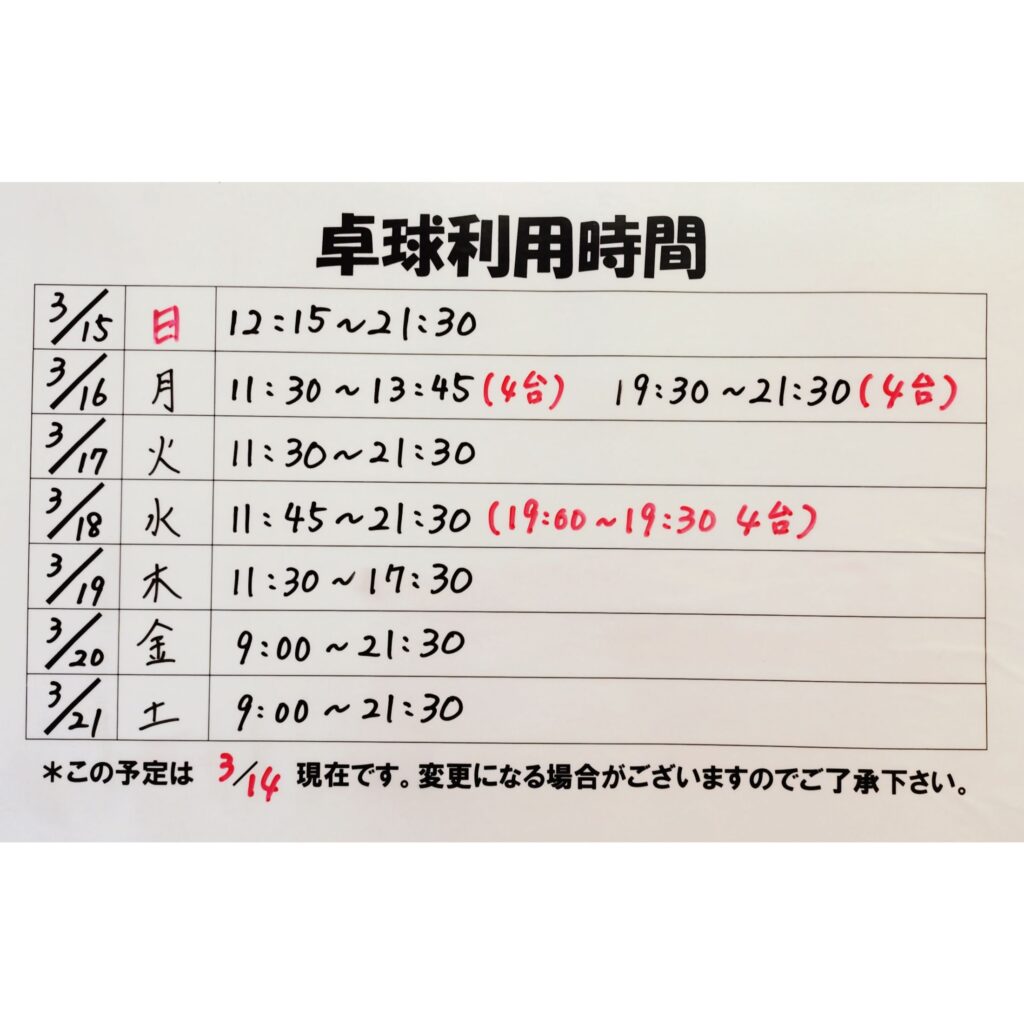 卓球利用時間
3/15 日 12:15~21:30
3/16 月 11:30~13:45(4台) 19:30~21:30(4台)
3/17 火 11:30~21:30
3/18 水 11:45~21:30 (19:00~19:30 4台)
3/19 木 11:30~17:30
3/20 金 9:00~21:30
3/21 土 9:00~21:30
*この予定は 3/14 現在です。変更になる場合がございますのでご了承下さい。